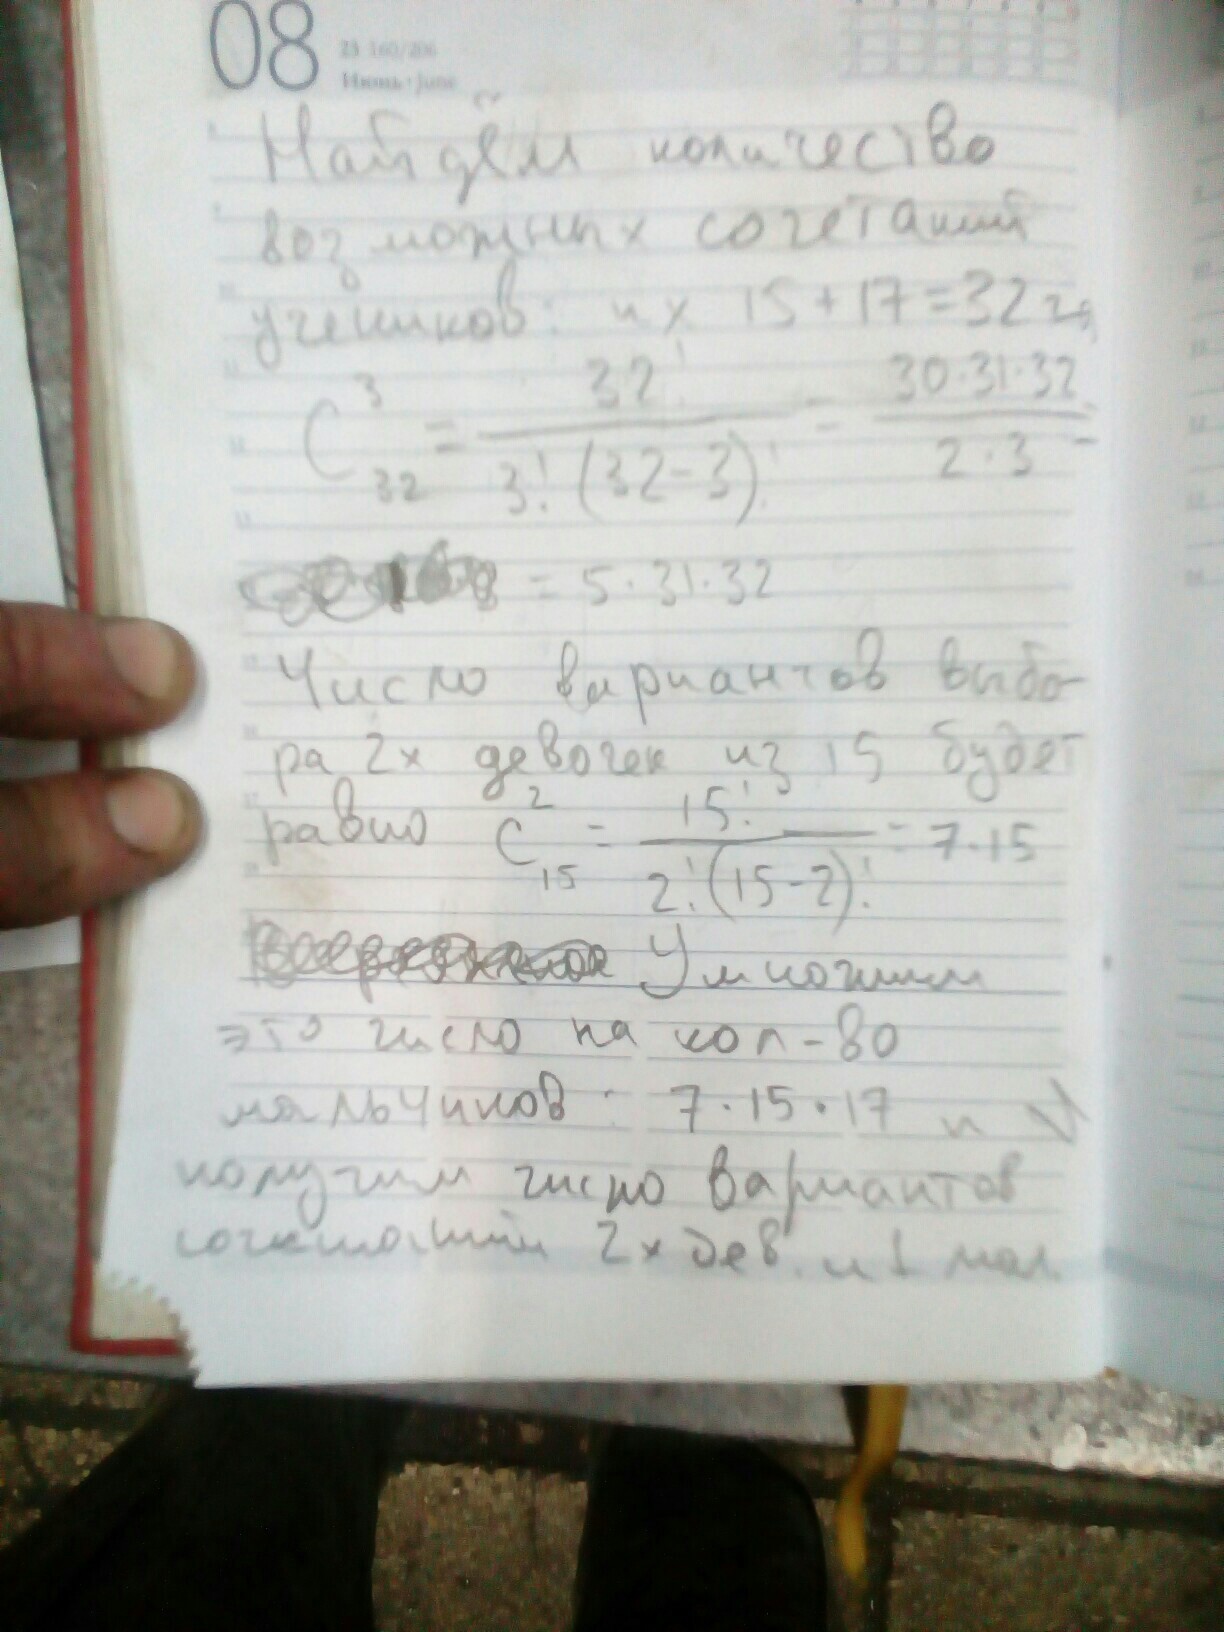 08
23 160/206
Июнь • June
Найдём количество
возможных сочетаний
учеников: их 15+17=32
C³₃₂ = 32! / 3!(32-3)! = 30·31·32 / 2·3 =
= 5·31·32
Число вариантов выбо-
ра 2х девочек из 15 будет
равно C²₁₅ = 15! / 2!(15-2)! = 7·15
Умножим
это число на кол-во
мальчиков: 7·15·17 и
получим число вариантов
сочетаний 2х дев. и 1 мал.